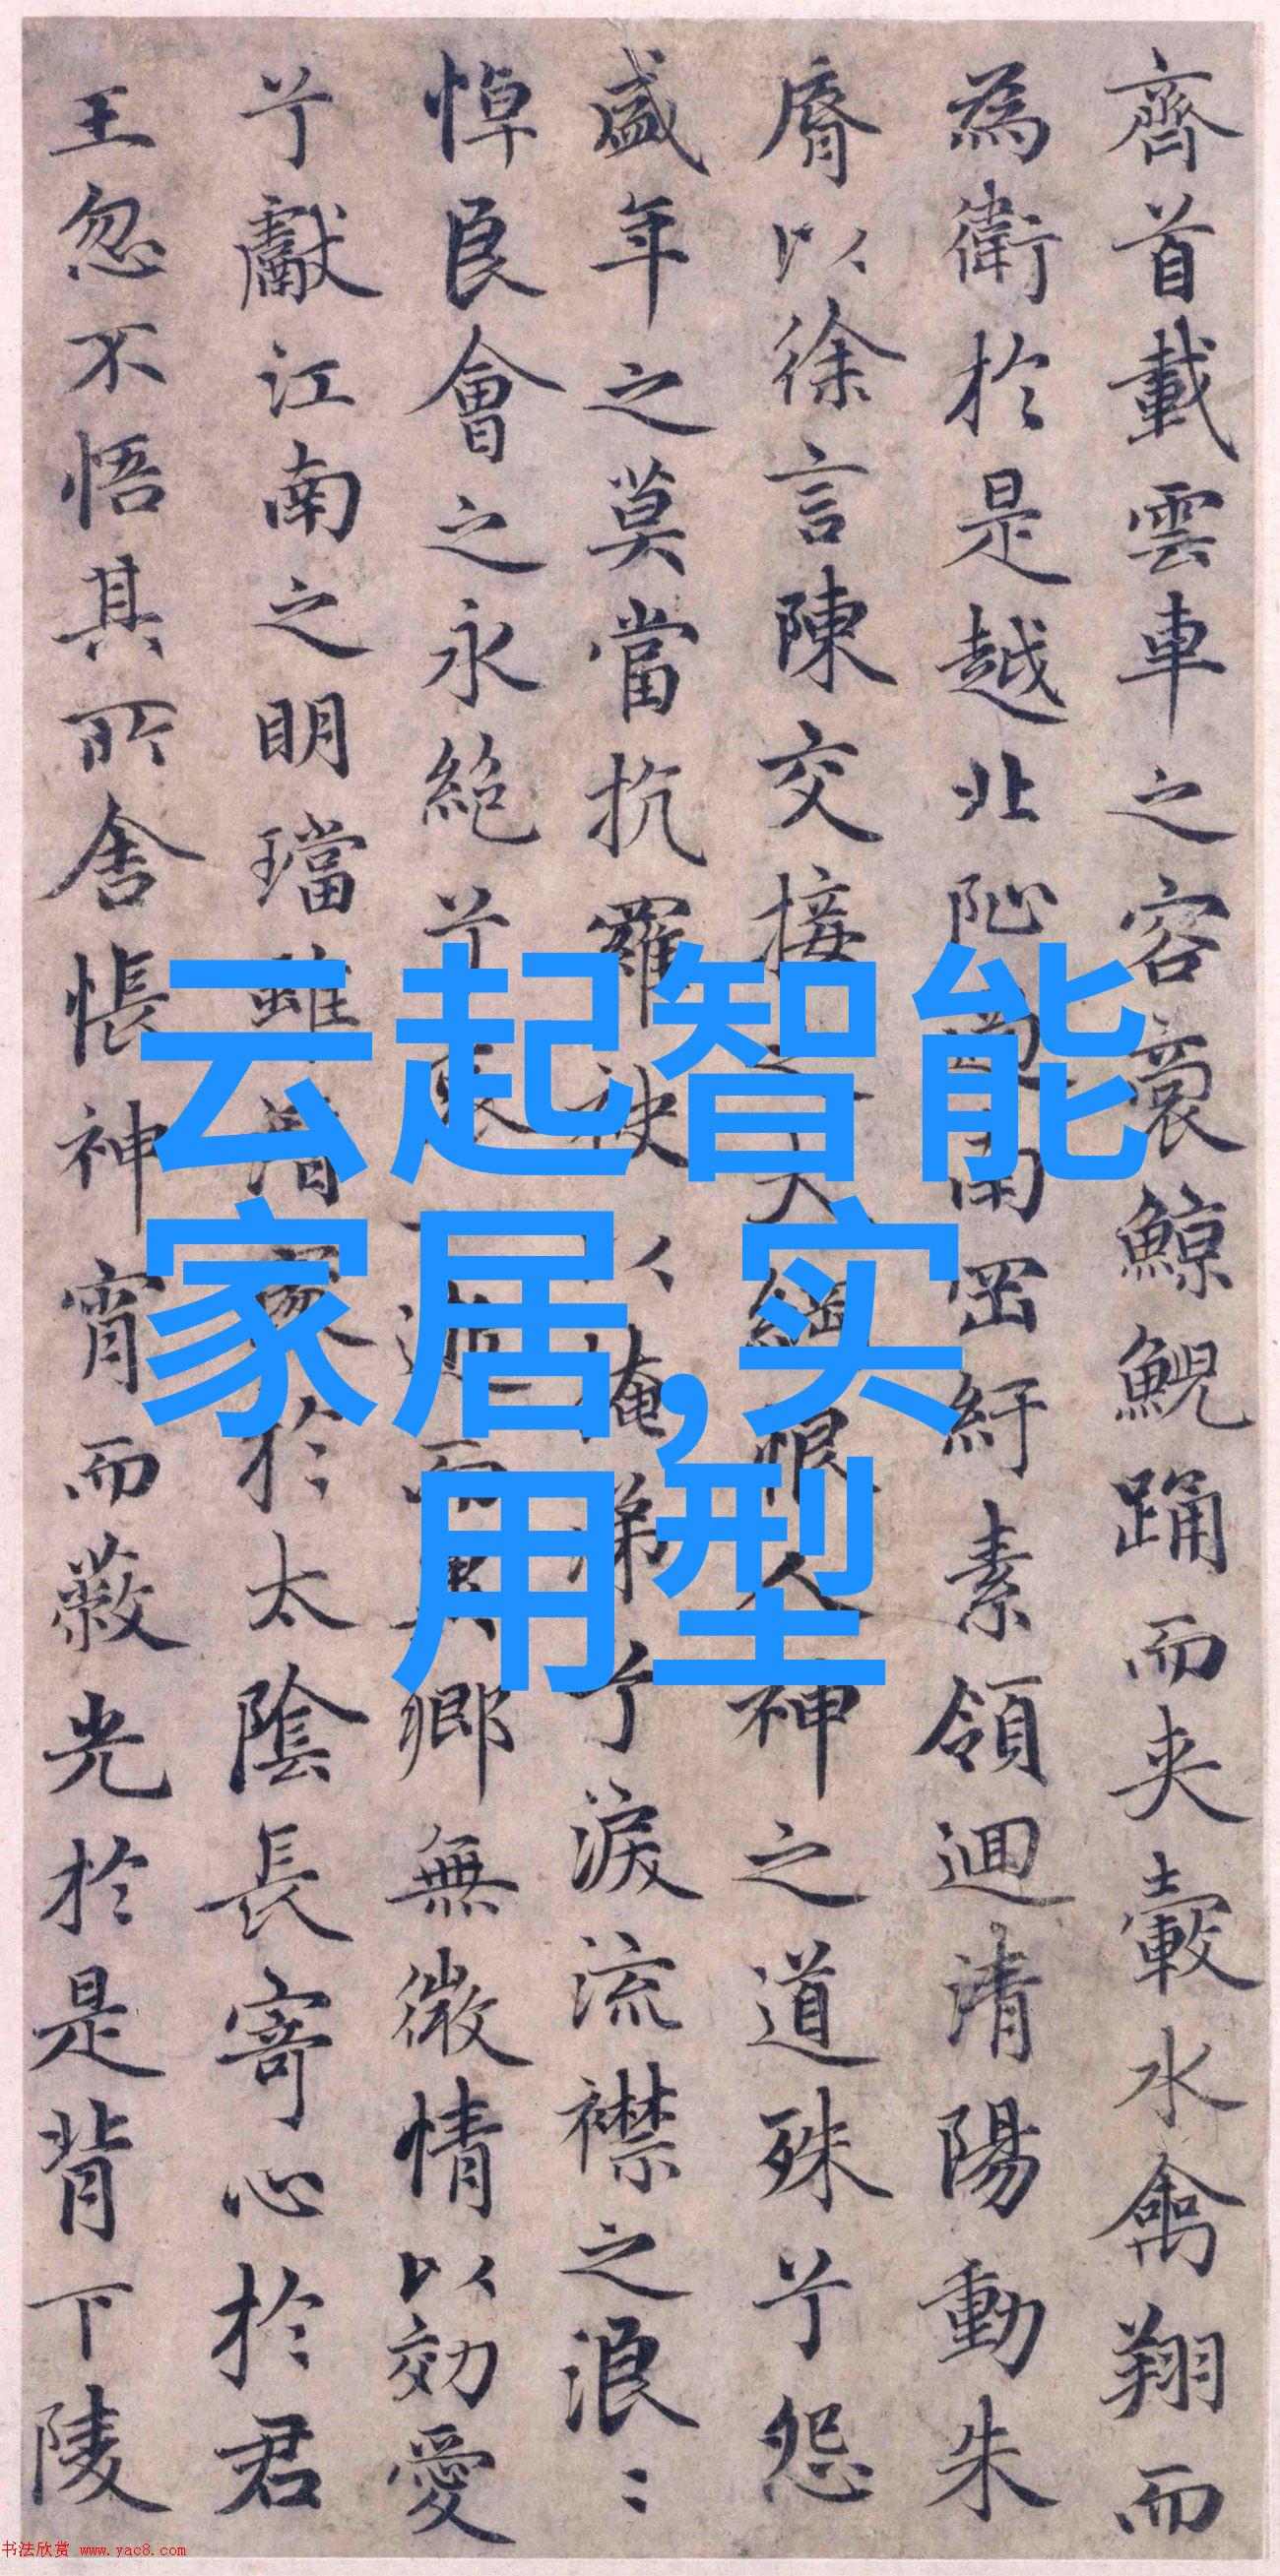 齊首載雲車之容裔鯨鯢踊而夾轂水禽翔而
為衛於是越北阯過南岡紆素領迴清陽動朱
脣以徐言陳交接之大綱恨人神之道殊兮怨
盛年之莫當抗羅袂以掩涕兮淚流襟之浪〻
悼良會之永絕兮哀一逝而異鄉無微情以効愛
兮獻江南之明璫雖潛處於太陰長寄心於君
王忽不悟其所舍悵神宵而蔽光於是背下陵
云起智能
家居,实
用型
书法欣赏 www.yac8.com